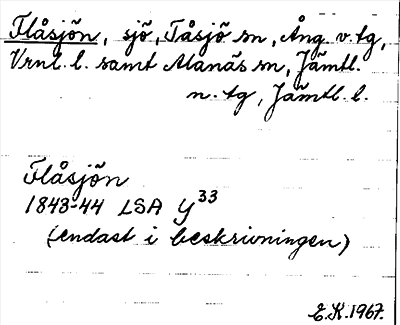 Flåsjön, sjö, Tåsjö sn, Ång. v. tg,
Vrnl. l. samt Alanäs sn, Jämtl.
n. tg, Jämtl. l.
Flåsjön
1843-44 LSA Y33
(endast i beskrivningen)
E.K. 1967.